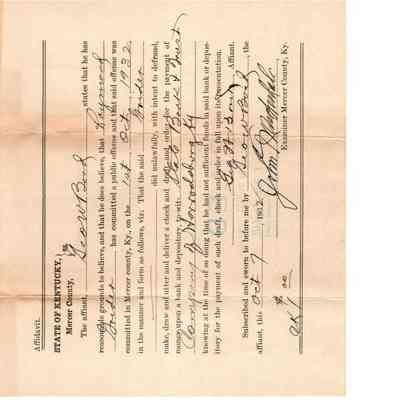 Affidavit.
STATE OF KENTUCKY,
Mercer County,
The affiant, Geo W Bond, states that he has
reasonable grounds to believe, and that he does believe, that Raymond
has committed a public offense and that said offense was
committed in Mercer county, Ky., on the 1st Oct, 1932
in the manner and form as follows, viz: That the said
did unlawfully, with intent to defraud,
make, draw and utter and deliver a check and draft and order for the payment of
money upon a bank and depository, to-wit: State Bank & Trust
Company of Harrodsburg Ky
knowing at the time of so doing that he had not sufficient funds in said bank or depos-
itory for the payment of such draft, check and order in full upon its presentation.
Geo W Bond Affiant.
Subscribed and sworn to before me by Geo W Bond, the
affiant, this Oct 7 1932
Examiner Mercer County, Ky.
00